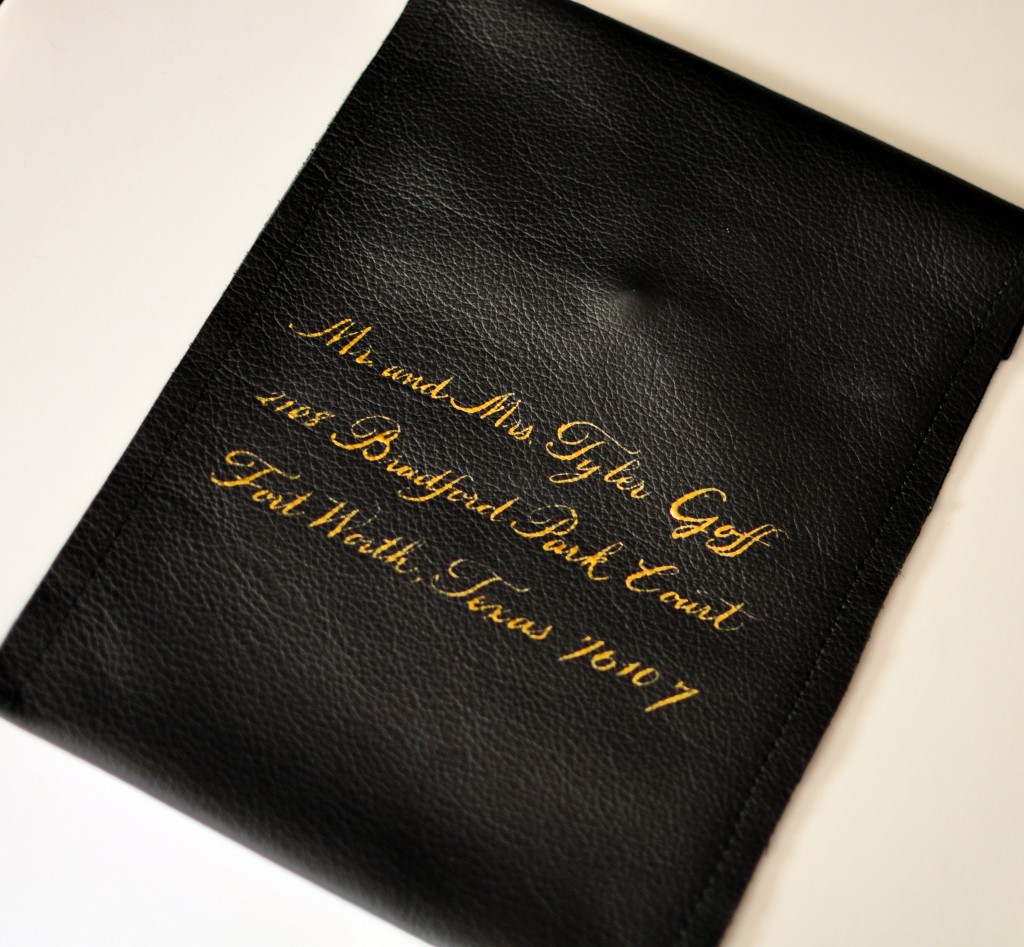 Mr. and Mrs. Tyler Goff
2108 Bradford Park Court
Fort Worth, Texas 76107